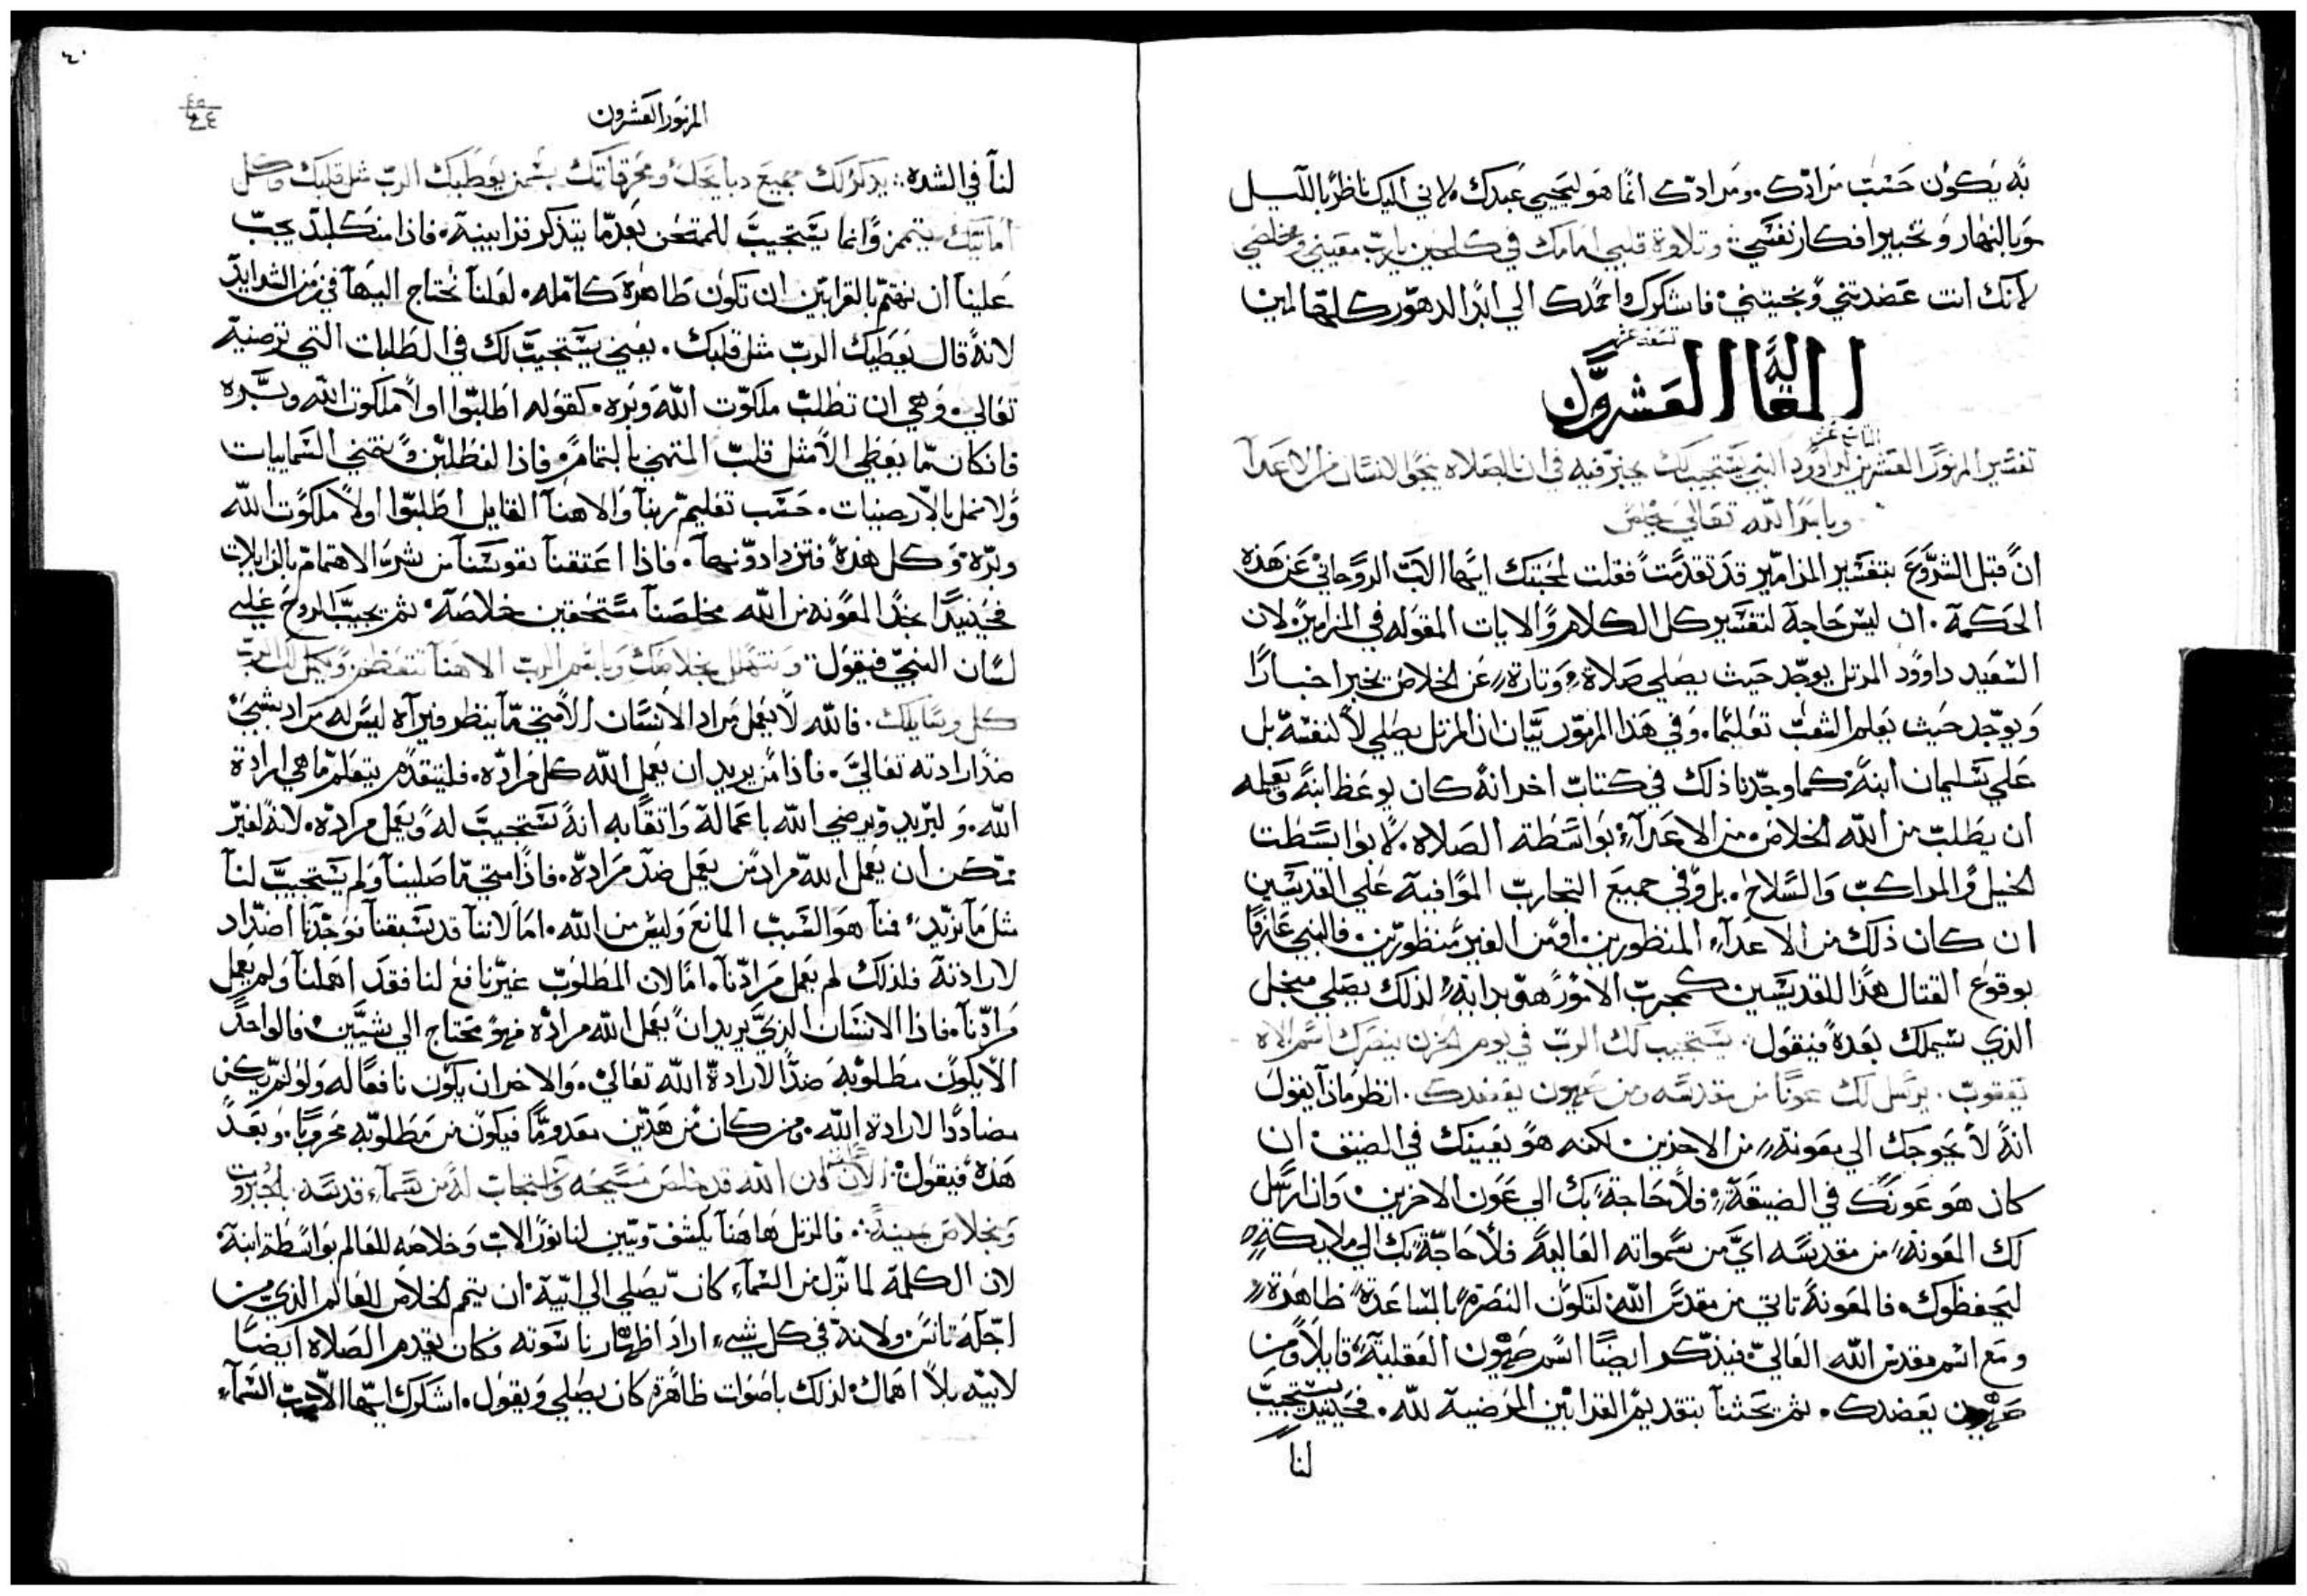 به يكون حسب مرادك. ومرادك انما هو ليحيي عبدك. لاني اليك ناظرًا بالليل
وبالنهار وتخبير افكار نفسي وتلاوة قلبي امامك في كل حين يارب معيني ومخلصي
لانك انت عضدتني ونجيتني فاشكرك وامجدك الي ابد الدهور كلها امين
تسعة عشر
المقالة العشرون
التاسع عشر
تفسير المزمور العشرين لداوود النبي يستجيب لك يخبر فيه في ان الصلاه تنجي الانسان من الاعدآ
وبامر الله تعالي يخلص
ان قبل الشروع بتفسير المزامير قد تقدمت فقلت لمحبتك ايها الاب الروحاني عن هذه
الحكمة. ان ليس حاجة لتفسير كل الكلام والايات المقوله في المزامير. لان
السعيد داوود المرتل يوجد حيث يصلي صلاة، وتارة عن الخلاص يخبر اخبارًا
ويوجد حيث يعلم الشعب تعليما. وفي هذا المزمور بيان ان المرتل يصلي لا لنفسه بل
علي سليمان ابنه. كما وجدنا ذلك في كتاب اخر انه كان يوعظ ابنه ويعلمه
ان يطلب من الله الخلاص من الاعدآء بواسطة الصلاه. لا بواسطت
الخيل والمراكب والسلاح. بل وفي جميع التجارب الموافيه علي القديسين
ان كان ذلك من الاعدآء المنظورين. او من الغير منظورين. فالنبي عارفًا
بوقوع القتال هذا للقديسين كمجرب الامور هو بذاته لذلك يصلي من اجل
الذي سيملك بعده فيقول. يستجيب لك الرب في يوم الحزن ينصرك اسم الاه
يعقوب. يرسل لك عونًا من مقدسه ومن صهيون يعضدك. انظر ماذا يقول
انه لا يحوجك الي معونة من الاخرين. لكنه هو يعينك في الضيق ان
كان هو عونك في الضيقة، فلا حاجة بك الي عون الاخرين. وان ارسل
لك المعونة من مقدسه اي من سمواته العالية فلا حاجة بك الي ملايكة
ليحفظوك. فالمعونة تاتي من مقدس الله لتكون النصرة بالمساعدة ظاهرة
ومع اسم مقدس الله العالي. فيذكر ايضًا اسم صهيون العقلية. قايلا ومن
صهيون يعضدك. ثم يحثنا بتقديم القرابين المرضية لله. فحينيذ يستجيب
لنا
٤٠
المزمور العشرون
لنا في الشده. يذكر لك جميع دبايحك ومحرقاتك يسمن يعطيك الرب مثل قلبك وكل
اماتيك يتمم. وانما يستجيب للممتحن بعد ما يتذكر قرابينه. فاذا من كلبد يجب
علينا ان نهتم بالقرابين ان تكون طاهرة كامله. لعلنا نحتاج اليها في زمن الشدايد
لانه قال يعطيك الرب مثل قلبك. يعني يستجيب لك في الطلبات التي ترضيه
تعالي. وهي ان تطلب ملكوت الله وبره. كقوله اطلبوا اولا ملكوت الله وبره
فان كان ما يعطي الا مثل قلب المتهني بالتمام. فاذا لنطلبن ونقتني السمايات
ولا نمل بالارضيات. حسب تعليم ربنا والاهنا القايل اطلبوا اولا ملكوت الله
وبره. وكل هذه فتزدادونها. فاذا اعتقنا نفوسنا من شرب الاهتمام بالزايلات
فحينيذًا نجد المعونه من الله مخلصنا مستحقين خلاصه. ثم يجيب الروح علي
لسان النبي فيقول. ونتهلل بخلاصك وباسم الرب الاهنا نتعظم ويكمل لك الرب
كل وسايلك. فالله لا يعمل مراد الانسان الا متي ما ينظر فيراه ليس له مراد بشي
ضد ارادته تعالي. فاذا من يريد ان يعمل الله كل مراده. فليتقدم يتعلم ما هي ارادة
الله. وليريد ويرضي الله باعماله واتقا به انه يستجيب له ويعمل مراده. لانه لغير
ممكن ان يعمل الله مراد من يعمل ضد مراده. فاذا متي ما صلينا ولم يستجيب لنا
مثل ما نريد، فنا هو السبب المانع وليس من الله. اما لاننا قد يسبقنا فوجدنا اضداد
لارادته فلذلك لم يعمل مرادنا. اما لان المطلوب غير نافع لنا فقد اهملنا ولم يعمل
مرادنا. فاذا الانسان الذي يريد ان يعمل الله مراده فهو محتاج الي شيين. فالواحد
الا يكون مطلوبه ضدا لارادة الله تعالي. والاخر ان يكون نافعًا له ولو لم يكن
مضاددا لارادة الله. ومن كان من هذين معدومًا فيكون من مطلوبه محرومًا. وبعد
هذه فيقول. الان علمت ان الله قد خلص مسيحه واستجاب له من سمآء قدسه. بالجبروت
وبخلاص يمينه. فالمرتل هاهنا يكشف ويبين لنا نور الاب وخلاصه للعالم بواسطة ابنه
لان الكلمة لما نزل من السمآء كان يصلي الي ابيه. ان يتمم الخلاص للعالم الذي من
اجله تانس. ولانه في كل شيء اراد اظهار ناسوته فكان يقدم الصلاه ايضًا
لابيه بلا اهمال. لذلك باصوات ظاهرة كان يصلي ويقول. اشكرك ايها الاب رب السمآء